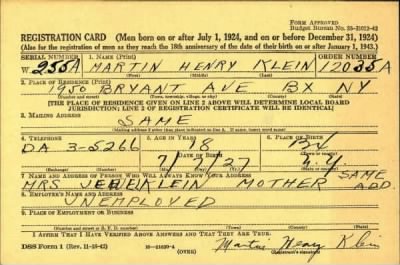 FORM APPROVED
Budget Bureau No. 33-R012-42
REGISTRATION CARD (Men born on or after July 1, 1924, and on or before December 31, 1924)
(Also for the registration of men as they reach the 18th anniversary of the date of their birth on or after January 1, 1943.)
SERIAL NUMBER 1. NAME (Print) ORDER NUMBER
W 255A MARTIN HENRY KLEIN 12035A
(First) (Middle) (Last)
2. PLACE OF RESIDENCE (Print)
1950 BRYANT AVE BX NY
(Number and street) (Town, township, village, or city) (County) (State)
[THE PLACE OF RESIDENCE GIVEN ON LINE 2 ABOVE WILL DETERMINE LOCAL BOARD
JURISDICTION; LINE 2 OF REGISTRATION CERTIFICATE WILL BE IDENTICAL]
3. MAILING ADDRESS
SAME
[Mailing address if other than place indicated on line 2. If same, insert word same]
4. TELEPHONE 5. AGE IN YEARS 6. PLACE OF BIRTH
DA 3-5266 18
DATE OF BIRTH
27
(Exchange) (Number) (Mo.) (Day) (Yr.) (State or country)
7. NAME AND ADDRESS OF PERSON WHO WILL ALWAYS KNOW YOUR ADDRESS
MRS KLEIN MOTHER SAME ADD.
8. EMPLOYER'S NAME AND ADDRESS
UNEMPLOYED
9. PLACE OF EMPLOYMENT OR BUSINESS
(Number and street or R. F. D. number) (Town) (County) (State)
I AFFIRM THAT I HAVE VERIFIED ABOVE ANSWERS AND THAT THEY ARE TRUE.
DSS Form 1 (Rev. 11-16-42) (OVER) Martin Henry Klein
(Registrant's signature)